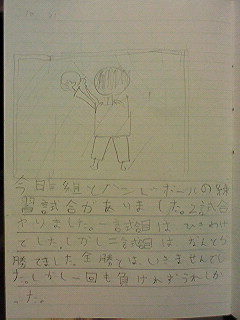 今日三組でバレーボールの練
習試合がありました。2試合
やりました。一試合目は、ひきわけ
でした。しかし二試合目は、なんとか
勝てました。全勝ではいきませんでし
た。しかし一回も負けれずうれしか
った。